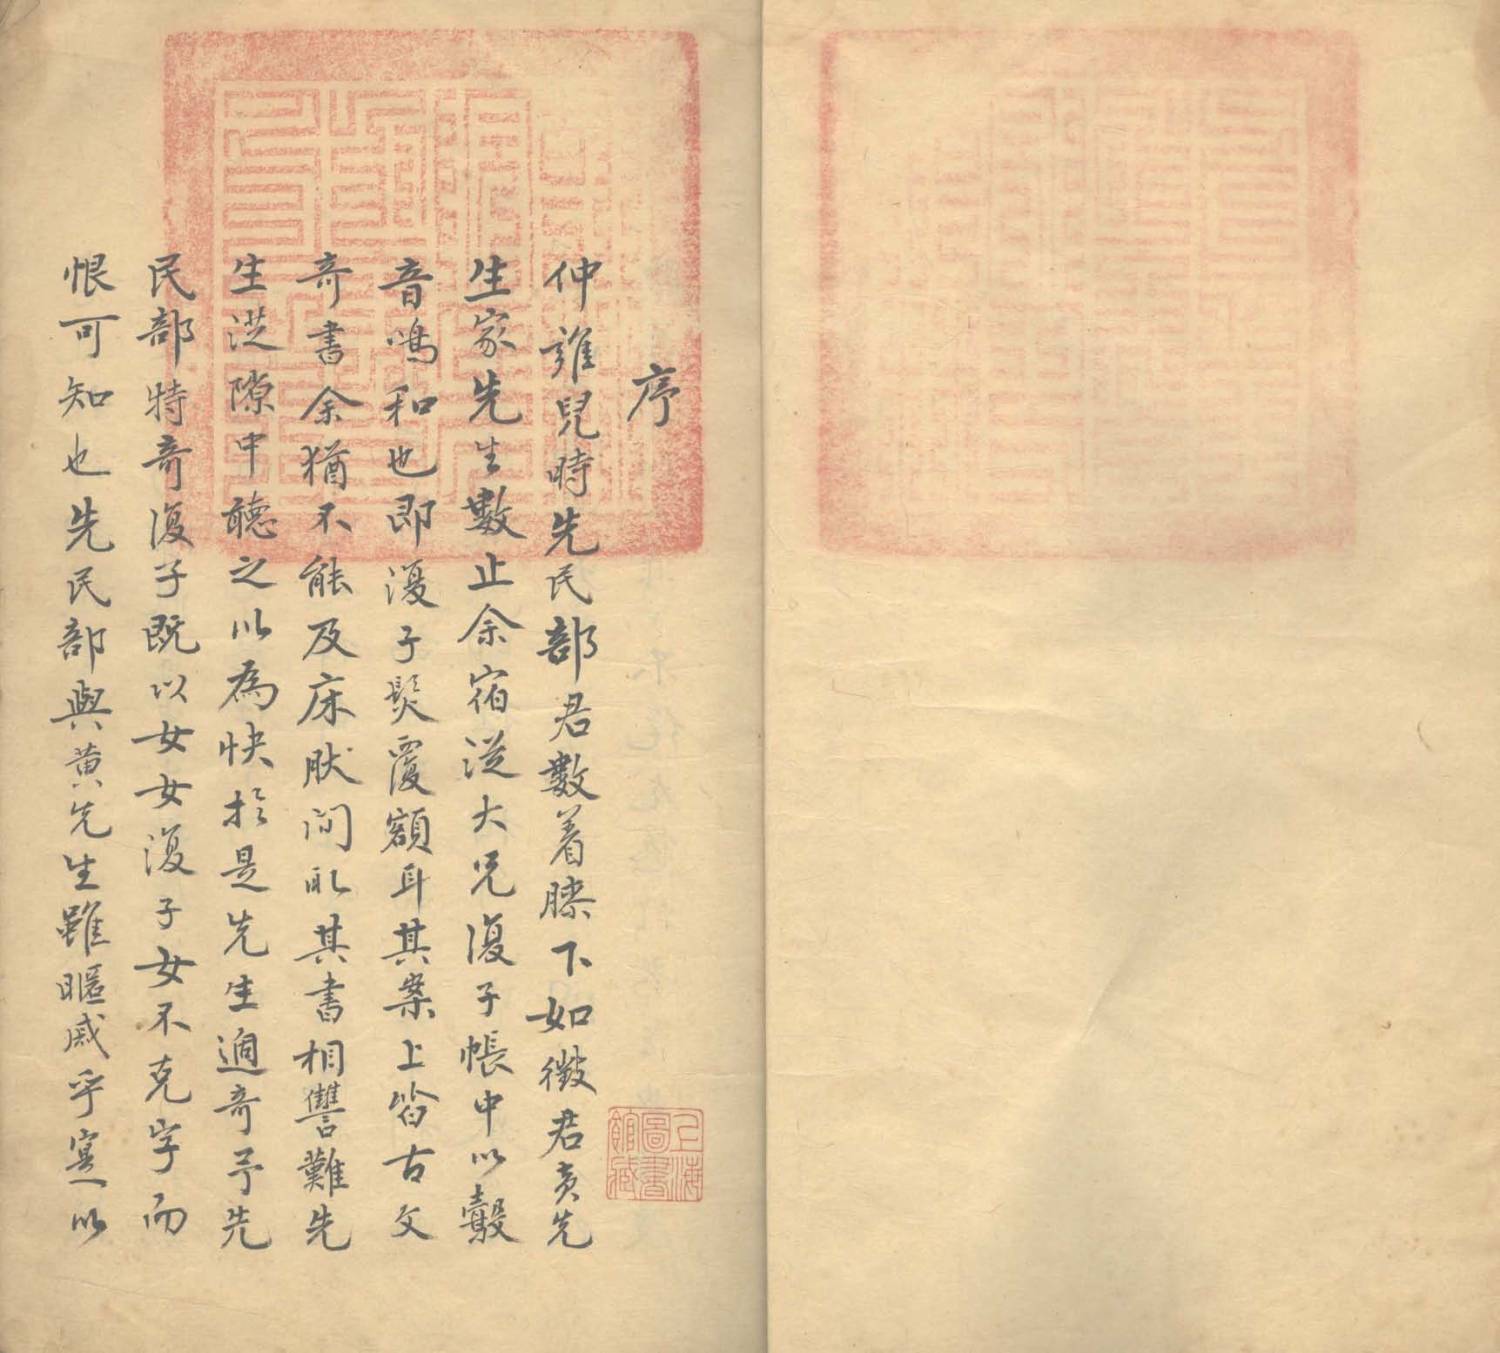 序
仲謹兒時先民部君數着膝下如徵君黃先
生家先生數止余宿從大兄復子帳中以鷇
音鳴和也即復子髮覆額耳其案上皆古文
奇書余猶不能及床肰間取其書相讐難先
生從隙中聽之以為快於是先生適奇予先
民部特奇復子既以女女復子女不克字而
恨可知也先民部與黃先生雖暱戚乎寔以
上海圖書館藏